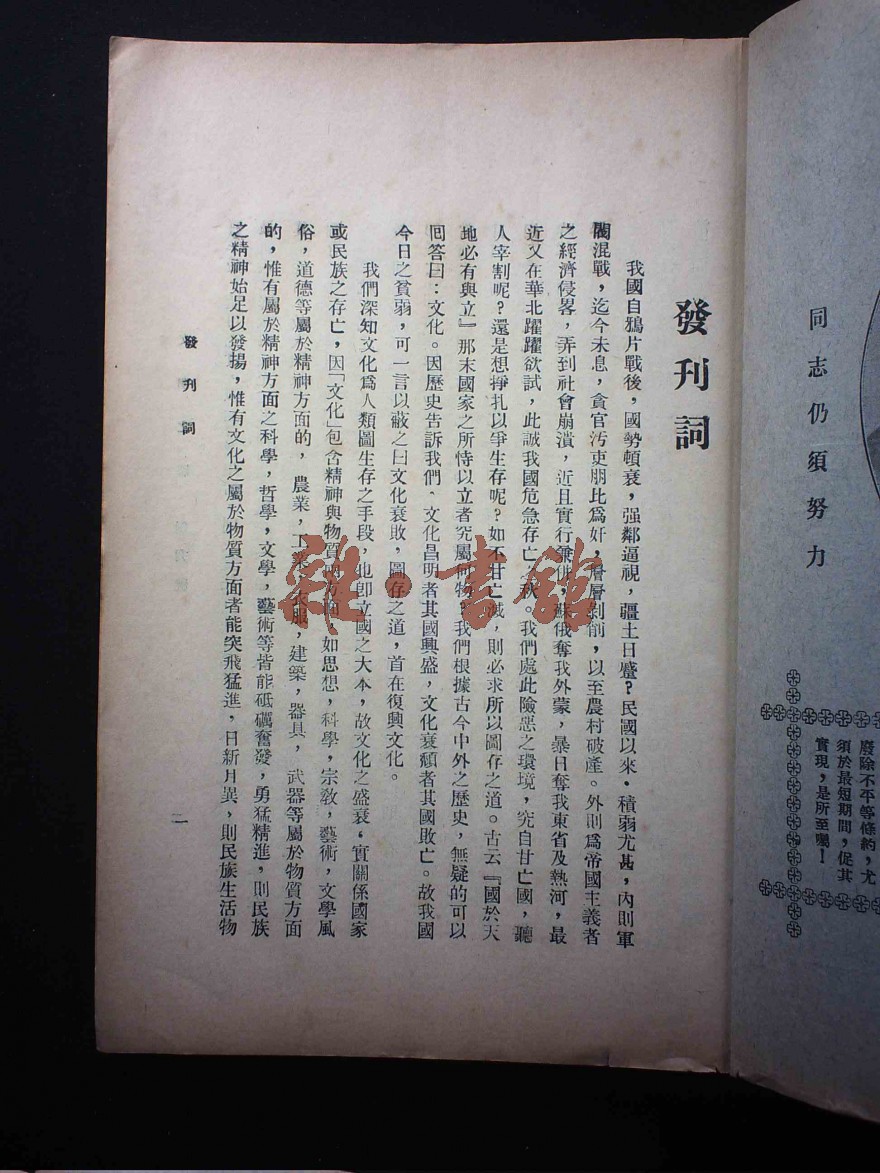 同志仍須努力
廢除不平等條約，尤
須於最短期間，促其
實現，是所至囑！
發刊詞
我國自鴉片戰後，國勢頓衰，强鄰逼視，疆土日蹙？民國以來・積弱尤甚，內則軍
閥混戰，迄今未息，貪官汚吏朋比爲奸，層層剝削，以至農村破產。外則爲帝國主義者
之經濟侵畧，弄到社會崩潰，近且實行兼併，蘇俄奪我外蒙，暴日奪我東省及熱河，最
近又在華北躍躍欲試，此誠我國危急存亡秋。我們處此險惡之環境，究自甘亡國，聽
人宰割呢？還是想掙扎以爭生存呢？如不甘亡滅，則必求所以圖存之道。古云『國於天
地必有與立』那末國家之所恃以立者究屬何物？我們根據古今中外之歷史，無疑的可以
回答曰：文化。因歷史告訴我們，文化昌明者其國興盛，文化衰頹者其國敗亡。故我國
今日之貧弱，可一言以蔽之曰文化衰敗，圖存之道，首在復興文化。
我們深知文化爲人類圖生存之手段，也卽立國之大本，故文化之盛衰，實關係國家
或民族之存亡，因「文化」包含精神與物質兩方面，如思想，科學，宗敎，藝術，文學風
俗，道德等屬於精神方面的，農業，工業，衣服，建築，器具，武器等屬於物質方面
的，惟有屬於精神方面之科學，哲學，文學，藝術等皆能砥礪奮發，勇猛精進，則民族
之精神始足以發揚，惟有文化之屬於物質方面者能突飛猛進，日新月異，則民族生活物
發刊詞
一
雜・書館